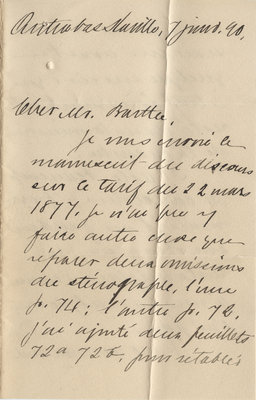 Arthabaskaville, 7 juin. 90.
Cher Mr. Barthe
Je vous envoie le
manuscrit du discours
sur le tarif du 22 mars
1877. Je n'ai pu y
faire autre chose que
réparer deux omissions
du sténographe, l'une
p. 74; l'autre p. 72.
J'ai ajouté deux feuillets
72a 72b, pour rétablir